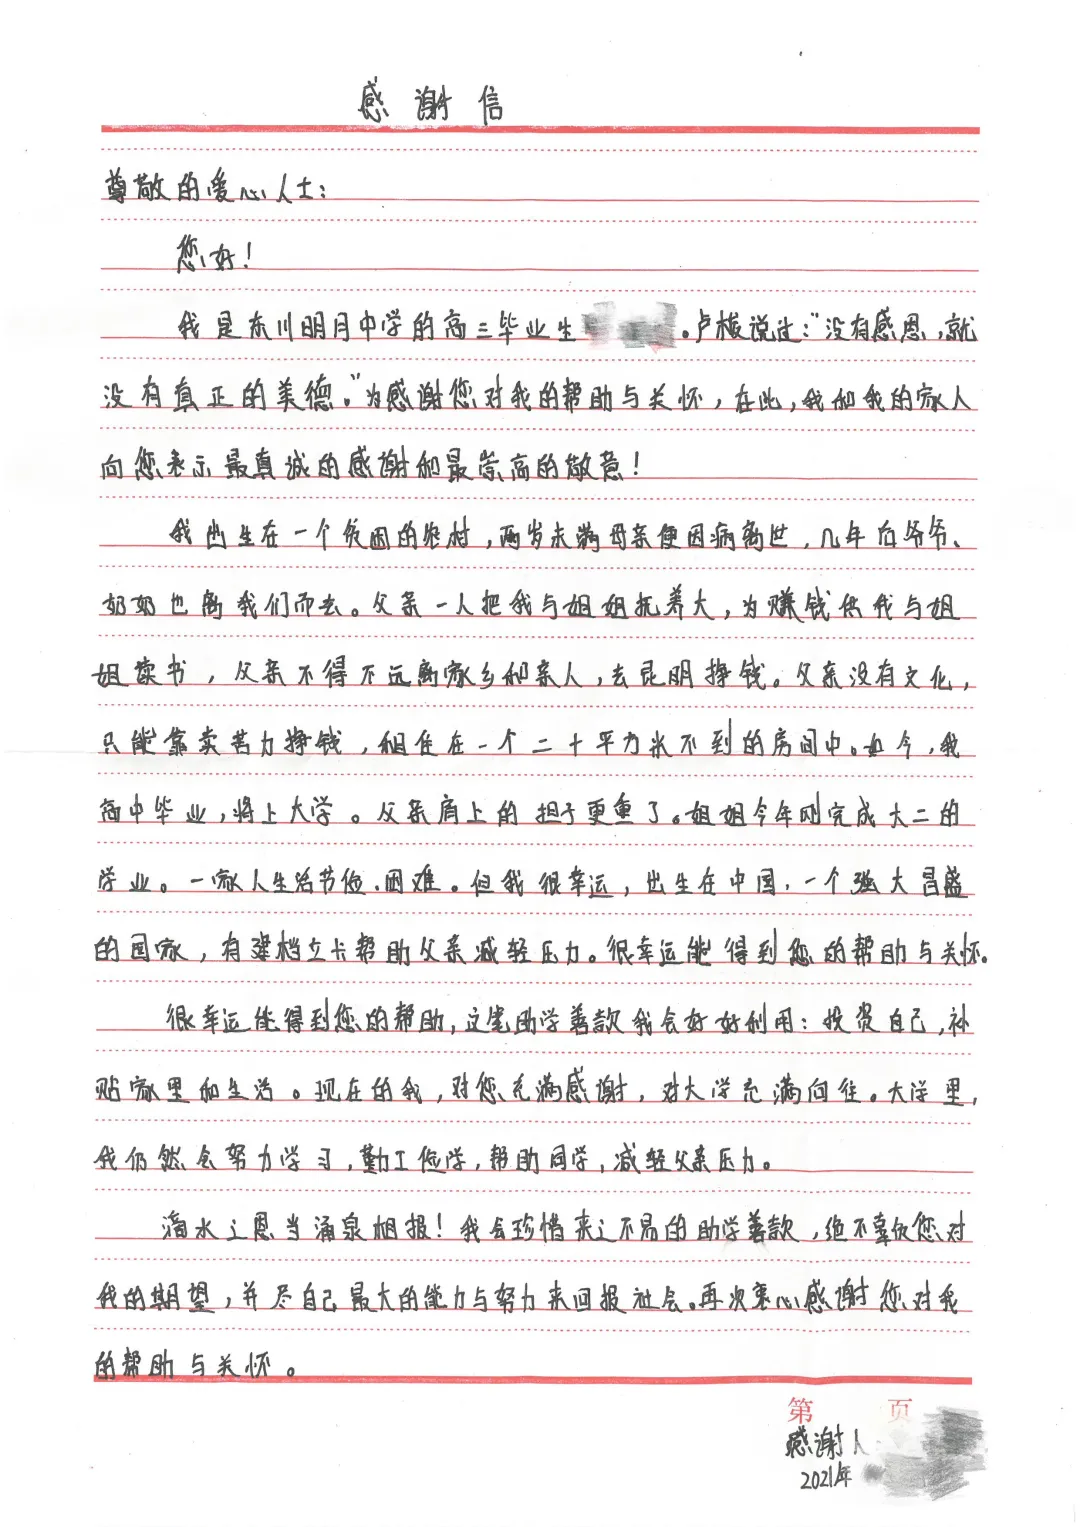 感谢信
尊敬的爱心人士:
您好!
我是东川明月中学的高三毕业生 。卢梭说过:"没有感恩,就
没有真正的美德。"为感谢您对我的帮助与关怀,在此,我和我的家人
向您表示最真诚的感谢和最崇高的敬意!
我出生在一个贫困的农村,两岁未满母亲便因病离世,几年后爷爷、
奶奶也离我们而去。父亲一人把我与姐姐抚养大,为赚钱供我与姐
姐读书,父亲不得不远离家乡和亲人,去昆明挣钱。父亲没有文化,
只能靠卖苦力挣钱,租住在一个二十平方米不到的房间中。如今,我
高中毕业,将上大学。父亲肩上的担子更重了。姐姐今年刚完成大二的
学业。一家人生活节俭、困难。但我很幸运,出生在中国,一个强大昌盛
的国家,有建档立卡帮助父亲减轻压力。很幸运能得到您的帮助与关怀。
很幸运能得到您的帮助,这笔助学善款我会好好利用:投资自己,补
贴家里和生活。现在的我,对您充满感谢,对大学充满向往。大学里,
我仍然会努力学习,勤工俭学,帮助同学,减轻父亲压力。
滴水之恩当涌泉相报!我会珍惜来之不易的助学善款,绝不辜负您对
我的期望,并尽自己最大的能力与努力来回报社会。再次衷心感谢您对我
的帮助与关怀。
第 页
感谢人
2021年